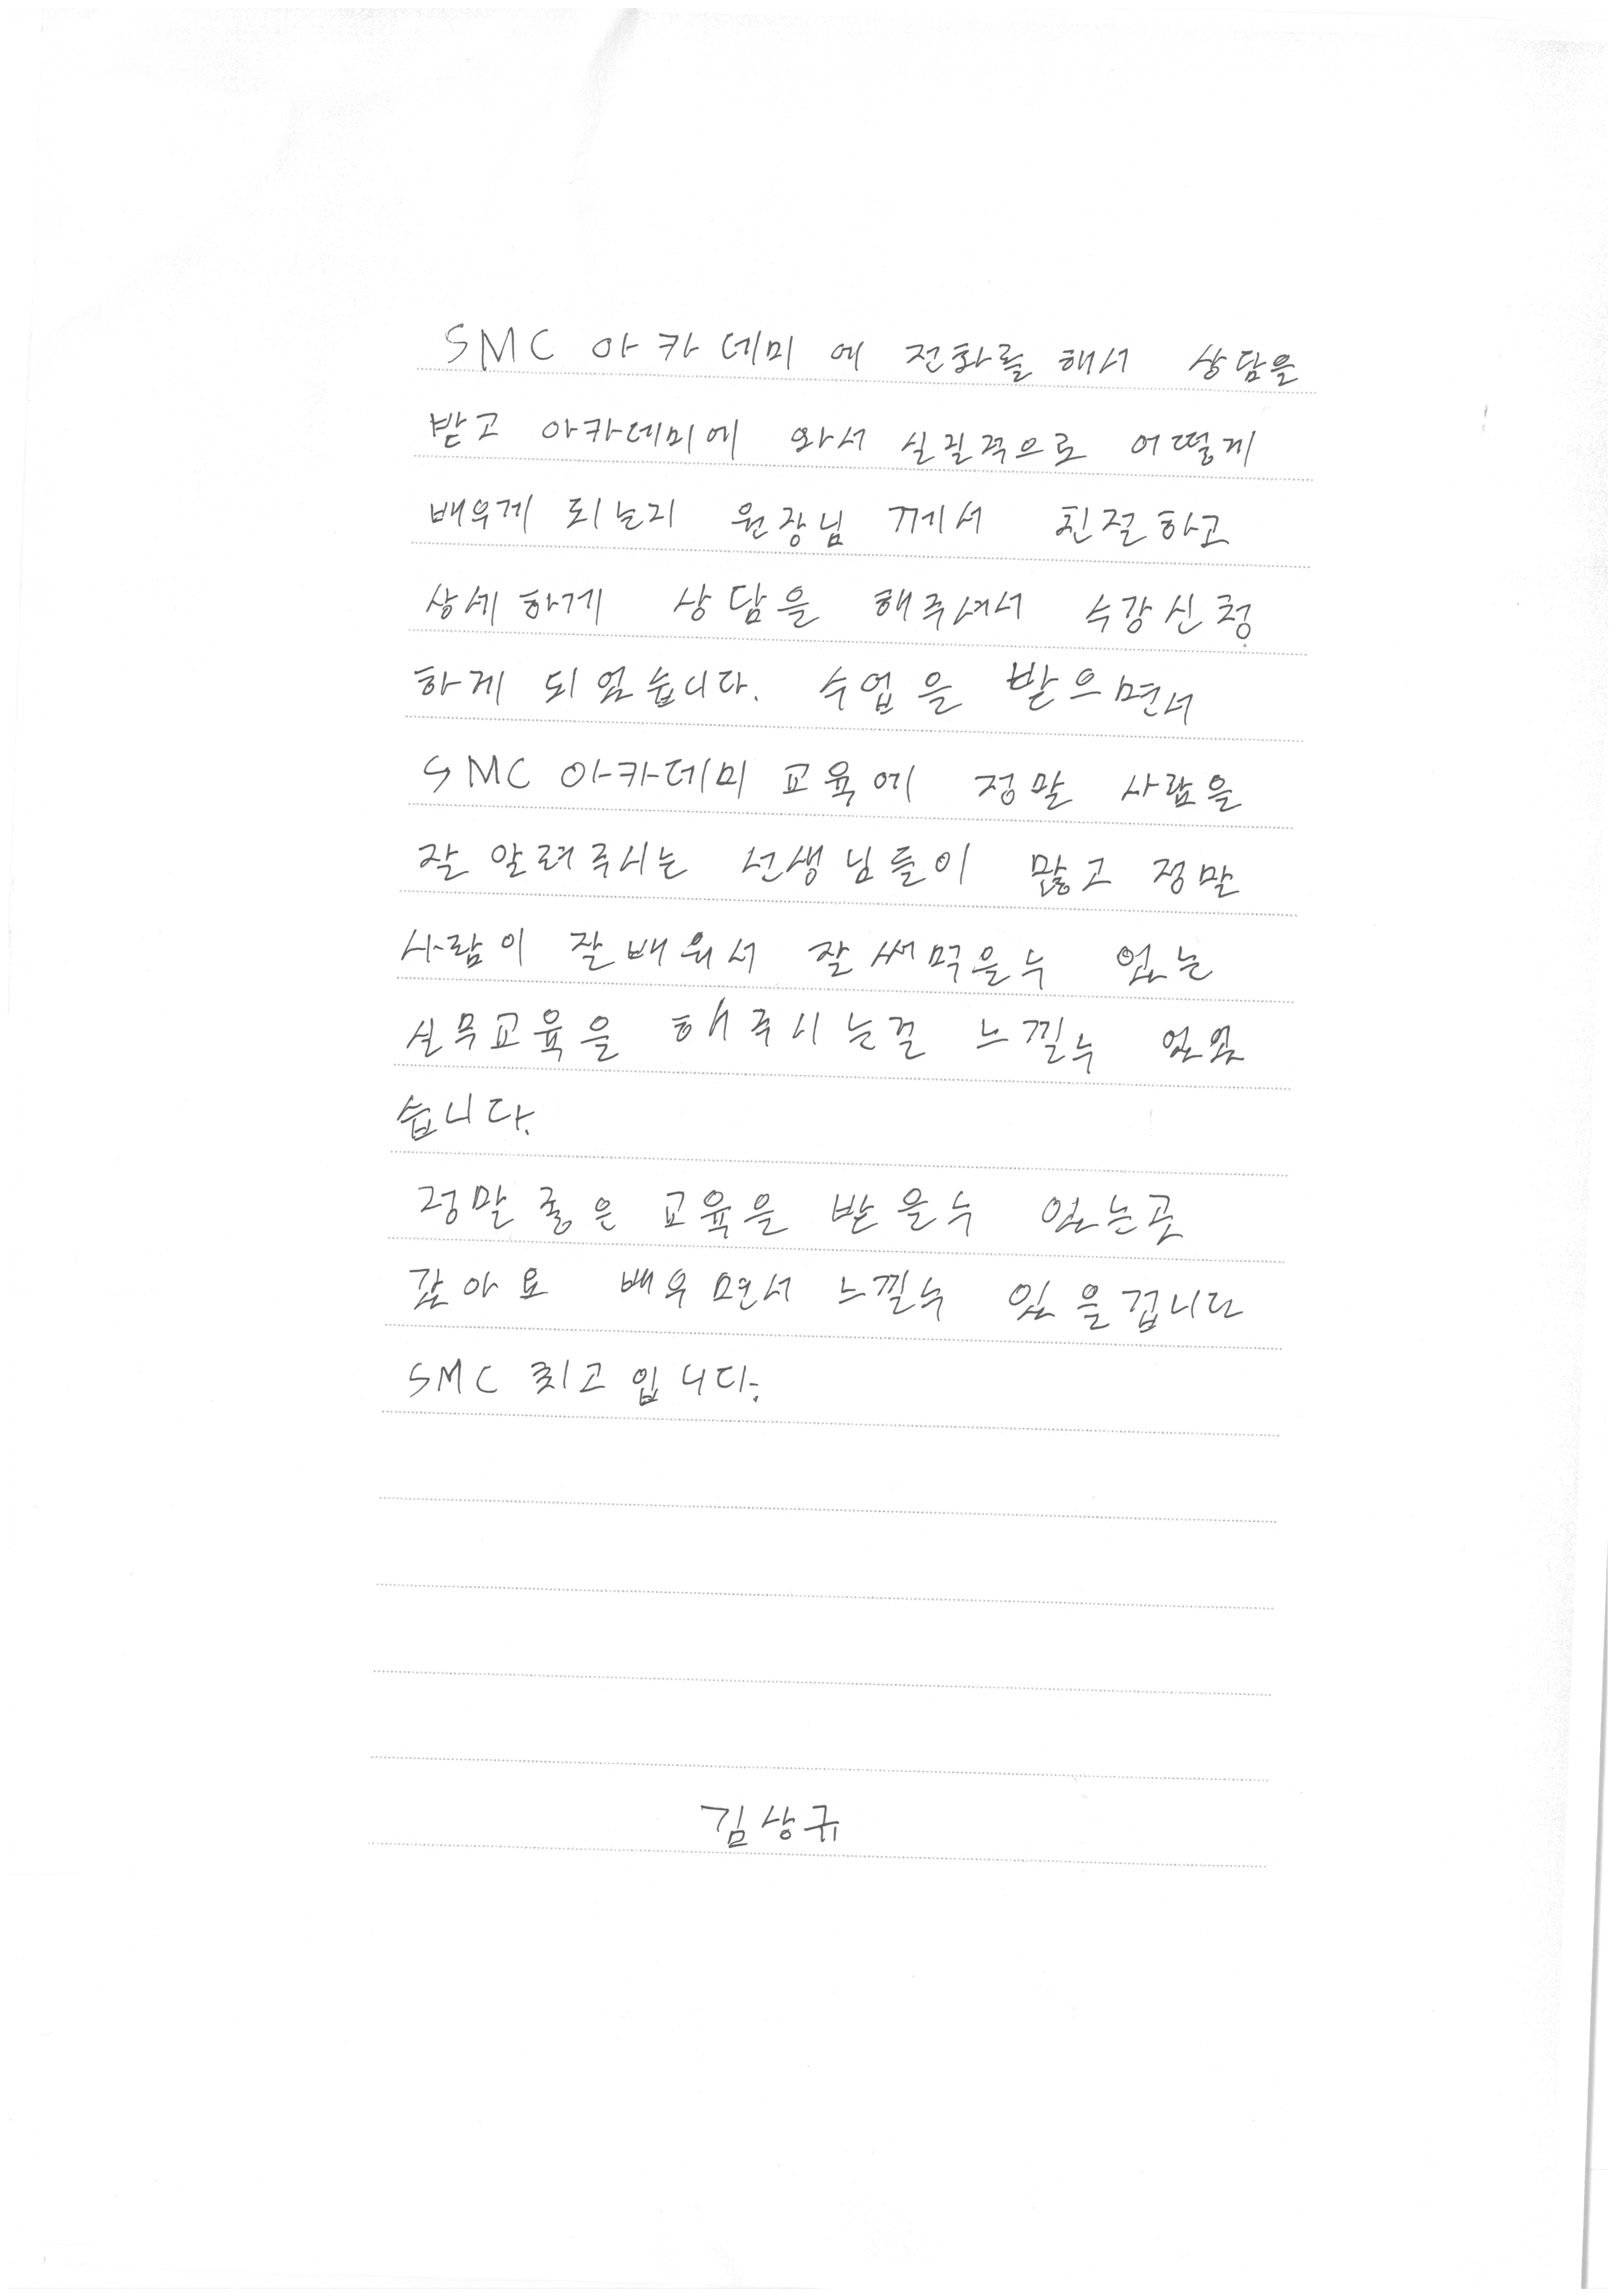 SMC 아카데미 에 전화를 해서 상담을
받고 아카데미에 와서 실질적으로 어떻게
배우게 되는지 원장님 께서 친절하고
상세하게 상담을 해주셔서 수강신청
하게 되었습니다. 수업을 받으면서
SMC 아카데미 교육에 정말 사람을
잘 알려주시는 선생님들이 많고 정말
사람이 잘배워서 잘써먹을수 있는
실무교육을 해주시는걸 느낄수 있었
습니다.
정말 좋은 교육을 받을수 있는곳
같아요 배우면서 느낄수 있을겁니다
SMC 최고입니다.
김상규